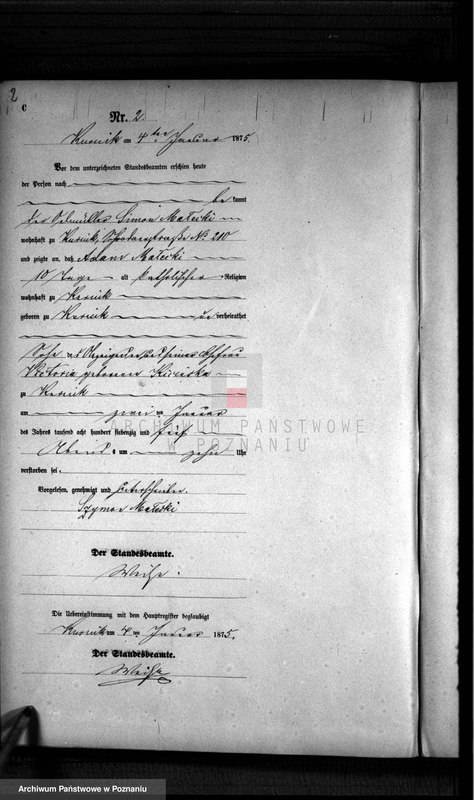 2
C
Nr. 2.
Kurnik am 4ten Januar 1875.
Vor dem unterzeichneten Standesbeamten erschien heute
der Person nach
be kannt
der Oelmüller Simon Małecki
wohnhaft zu Kurnik, No 210
und zeigte an, daß Adam Małecki
10 Tage alt katholischer Religion
wohnhaft zu Kurnik
geboren zu Kurnik un verheirathet
Sohn des Anzeigenden und seiner Ehefrau
Victoria geborenen
zu Kurnik
am zwei ten Januar
des Jahres tausend acht hundert siebenzig und fünf
Abend s um zehn Uhr
verstorben sei.
Vorgelesen, genehmigt und unterschrieben.
Szymon Małecki
Der Standesbeamte.
Weise.
Die Uebereinstimmung mit dem Hauptregister beglaubigt
Kurnik am 4 ten Januar 1875.
Der Standesbeamte.
Weise
ARCHIWUM PAŃSTWOWE
W POZNANIU
Archiwum Państwowe w Poznaniu